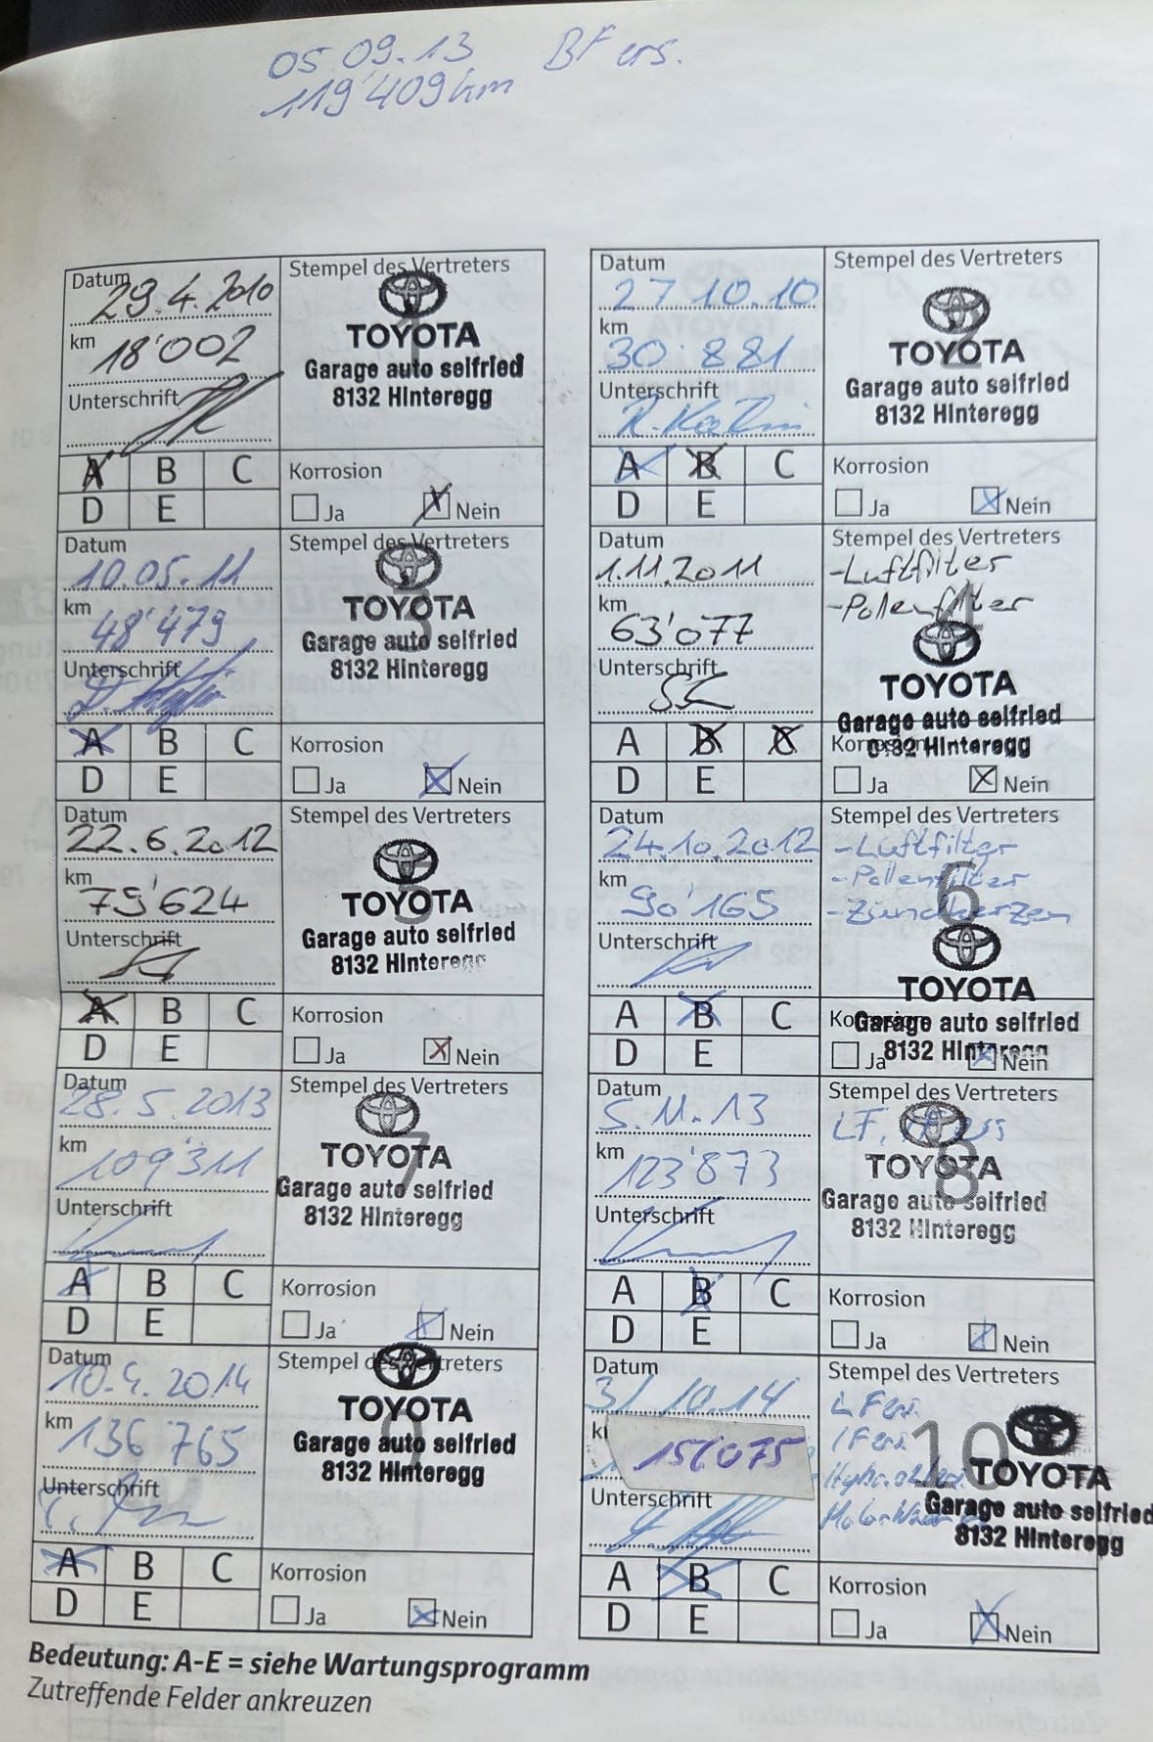 05.09.13 BF ers.
119'409 km
Datum
29.4.2010
km
18'002
Unterschrift
Stempel des Vertreters
1
TOYOTA
Garage auto selfried
8132 Hinteregg
A B C
D E
Korrosion
Ja Nein
Datum
27 10.10
km
30'881
Unterschrift
Stempel des Vertreters
2
TOYOTA
Garage auto selfried
8132 Hinteregg
A B C
D E
Korrosion
Ja Nein
Datum
10.05.11
km
48'479
Unterschrift
Stempel des Vertreters
3
TOYOTA
Garage auto selfried
8132 Hinteregg
A B C
D E
Korrosion
Ja Nein
Datum
1.11.2011
km
63'077
Unterschrift
Stempel des Vertreters
-Luftfilter
-Pollenfilter
4
TOYOTA
Garage auto selfried
8132 Hinteregg
A B C
D E
Korrosion
Ja Nein
Datum
22.6.2012
km
79'624
Unterschrift
Stempel des Vertreters
5
TOYOTA
Garage auto selfried
8132 Hinteregg
A B C
D E
Korrosion
Ja Nein
Datum
24.10.2012
km
90'165
Unterschrift
Stempel des Vertreters
-Luftfilter
-Pollenfilter
-Zündkerzen
6
TOYOTA
Garage auto selfried
8132 Hinteregg
A B C
D E
Korrosion
Ja Nein
Datum
28.5.2013
km
109'311
Unterschrift
Stempel des Vertreters
7
TOYOTA
Garage auto selfried
8132 Hinteregg
A B C
D E
Korrosion
Ja Nein
Datum
5.11.13
km
123'873
Unterschrift
Stempel des Vertreters
LF,
8
TOYOTA
Garage auto selfried
8132 Hinteregg
A B C
D E
Korrosion
Ja Nein
Datum
10.4.2014
km
136'765
Unterschrift
Stempel des Vertreters
9
TOYOTA
Garage auto selfried
8132 Hinteregg
A B C
D E
Korrosion
Ja Nein
Datum
31.10.14
Unterschrift
Stempel des Vertreters
LF ers.
IF ers.
10
TOYOTA
Garage auto selfried
8132 Hinteregg
A B C
D E
Korrosion
Ja Nein
Bedeutung: A-E = siehe Wartungsprogramm
Zutreffende Felder ankreuzen